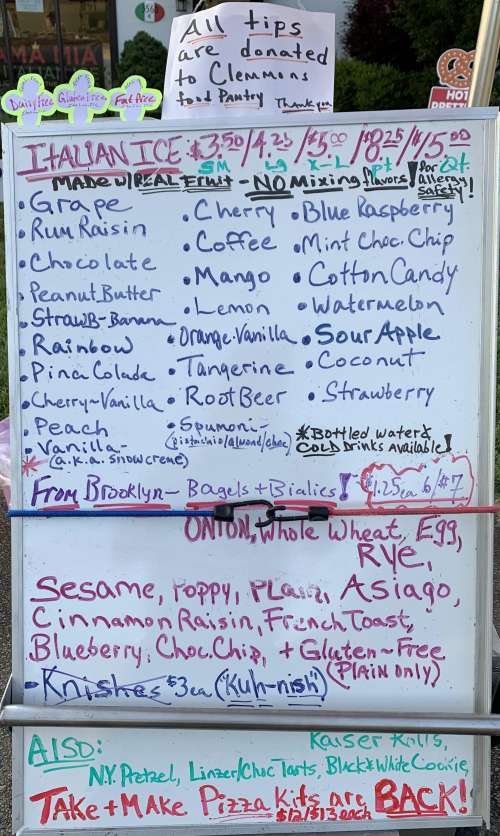 AMA MIA
All tips
are donated
to Clemmons
food Pantry Thank you
Dairy Free Gluten Free Fat Free
HOT
PRETZ
ITALIAN ICE $3.50/4.25/$5.00/$8.25/$15.00
SM Lg X-L pt Qt.
MADE w/REAL Fruit - NO Mixing flavors! for allergy safety!
• Grape
• Rum Raisin
• Chocolate
• Peanut Butter
• StrawB-Banana
• Rainbow
• Pina Colada
• Cherry~Vanilla
• Peach
• Vanilla-
* (a.k.a. snow creme)
• Cherry
• Coffee
• Mango
• Lemon
• Orange-Vanilla
• Tangerine
• Root Beer
• Spumoni-
(pistachio/almond/choc)
• Blue Raspberry
• Mint Choc. Chip
• Cotton Candy
• Watermelon
• Sour Apple
• Coconut
• Strawberry
*Bottled water &
COLD Drinks Available!
From Brooklyn- Bagels + Bialies! $1.25ea 6/$7
ONION, Whole Wheat, Egg,
Rye,
Sesame, Poppy, PLain, Asiago,
Cinnamon Raisin, French Toast,
Blueberry, Choc. Chip, + Gluten-Free
(PLAIN only)
• Knishes $3ea ("Kuh-nish")
ALSO: Kaiser Rolls,
N.Y. Pretzel, Linzer/Choc Tarts, Black & White Cookie,
TAKE + MAKE Pizza Kits are BACK!
$12/$13 each